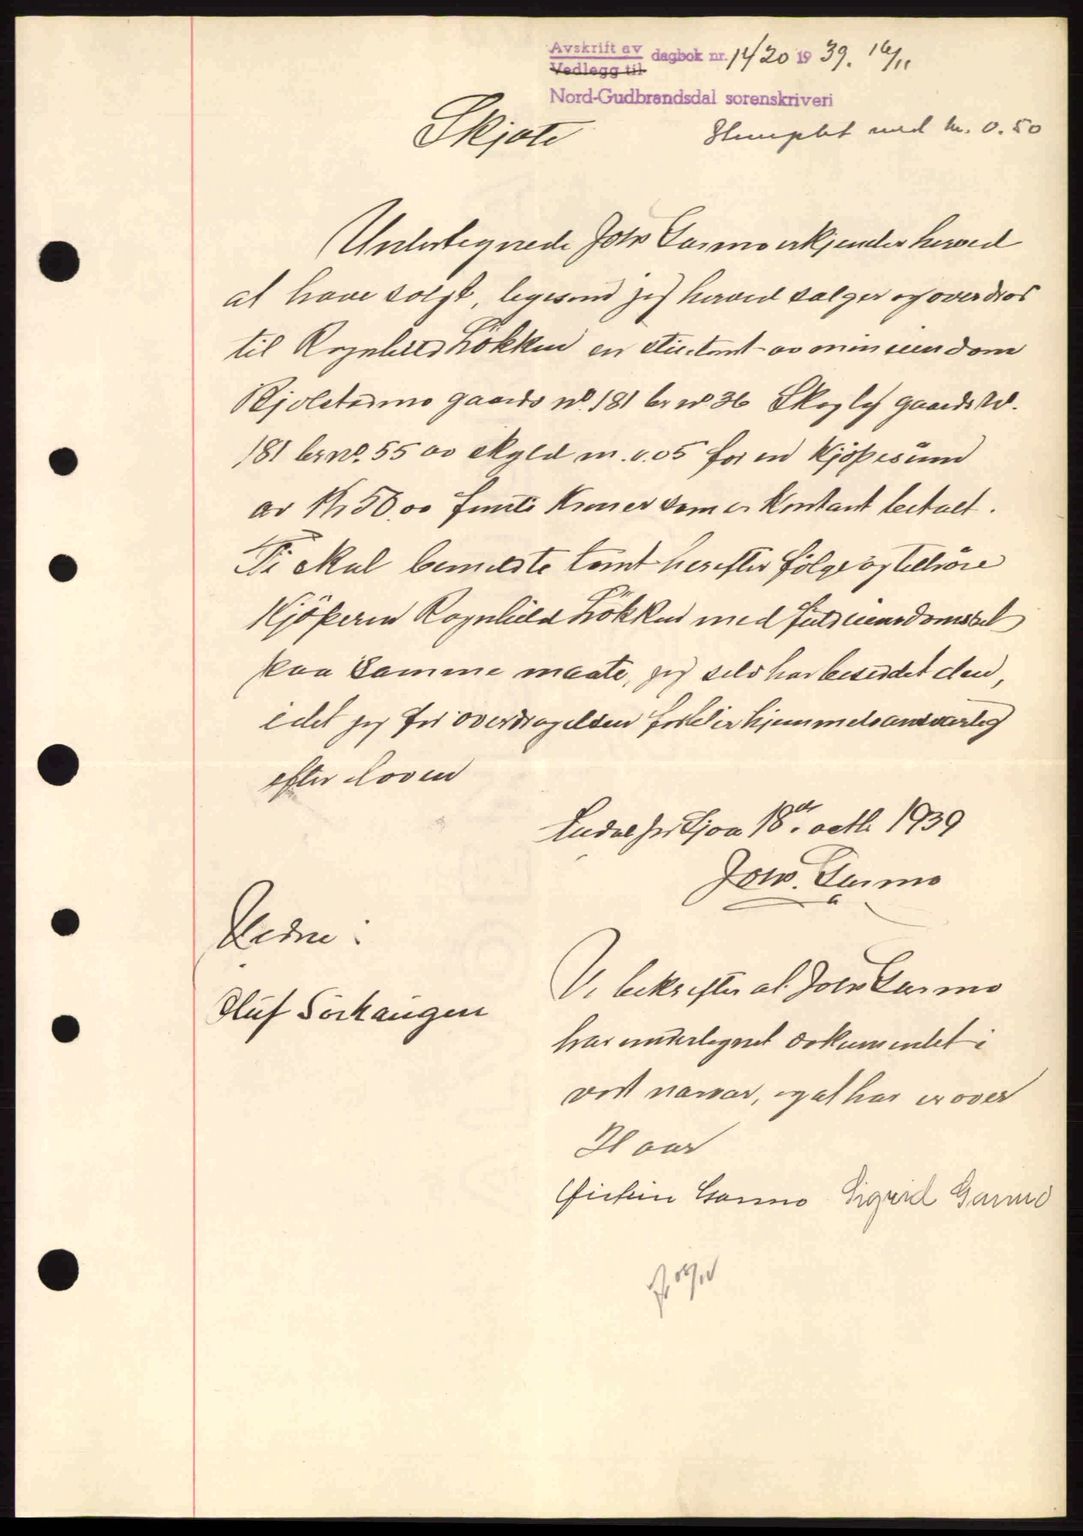 Avskrift av
Vedlegg til
dagbok nr. 1420 1939. 16/11
Nord-Gudbrandsdal sorenskriveri
Skjøte
Stemplet med kr. 0.50
Undertegnede Joh. Garmo erkjender herved
at have solgt, legesom jeg herved sælger og overdrar
til Ragnhild Løkken en tomt av min eiendom
Kjolstadmo gaards no. 181 br no 36 Skogly gaards no.
181 br no. 55 av skyld m. 0.05 for en Kjöpesum
av Kr 50.00 femti Kroner som er Kontant betalt.
Ti skal bemeldte tomt herefter følge og tilhöre
Kjöperen Ragnhild Lökken med fuld eiendomsret
paa samme maate, jeg selv har besiddet den,
idet jeg for overdragelsen forblir hjemmelsansvarlig
efter loven
Sjoa 18de octb. 1939
Joh. Garmo
Vidne:
Vi bekrefter at Joh Garmo
Oluf Sörhaugen
har undertegnet dokumentet i
vort nærvær, og at han er over
21 aar
Garmo Sigrid Garmo